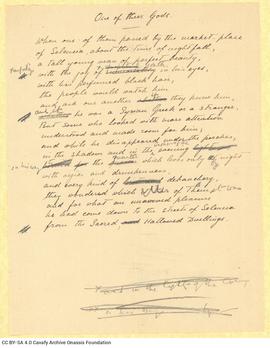 One of their Gods.
When one of them passed by the market place
of Seleucia, about the time of nightfall,
a tall young man of perfect beauty,
with the joy of in his eyes,
with his perfumed black hair,
the people would watch him
and ask one another they knew him,
he was a Syrian Greek or a stranger.
But some who looked with more attention
understood and made room for him;
and while he disappeared under the porches,
in the shadow and in the evening
for the quarter which lives only at night
with orgies and drunkenness
and every kind of debauchery,
they wondered which of Them it was
and for what un avowed pleasure
he had come down to the streets of Seleucia
from the Sacred, and Hallowed Dwellings.
in the light of the
CC BY-SA 4.0 Cavafy Archive Onassis Foundation